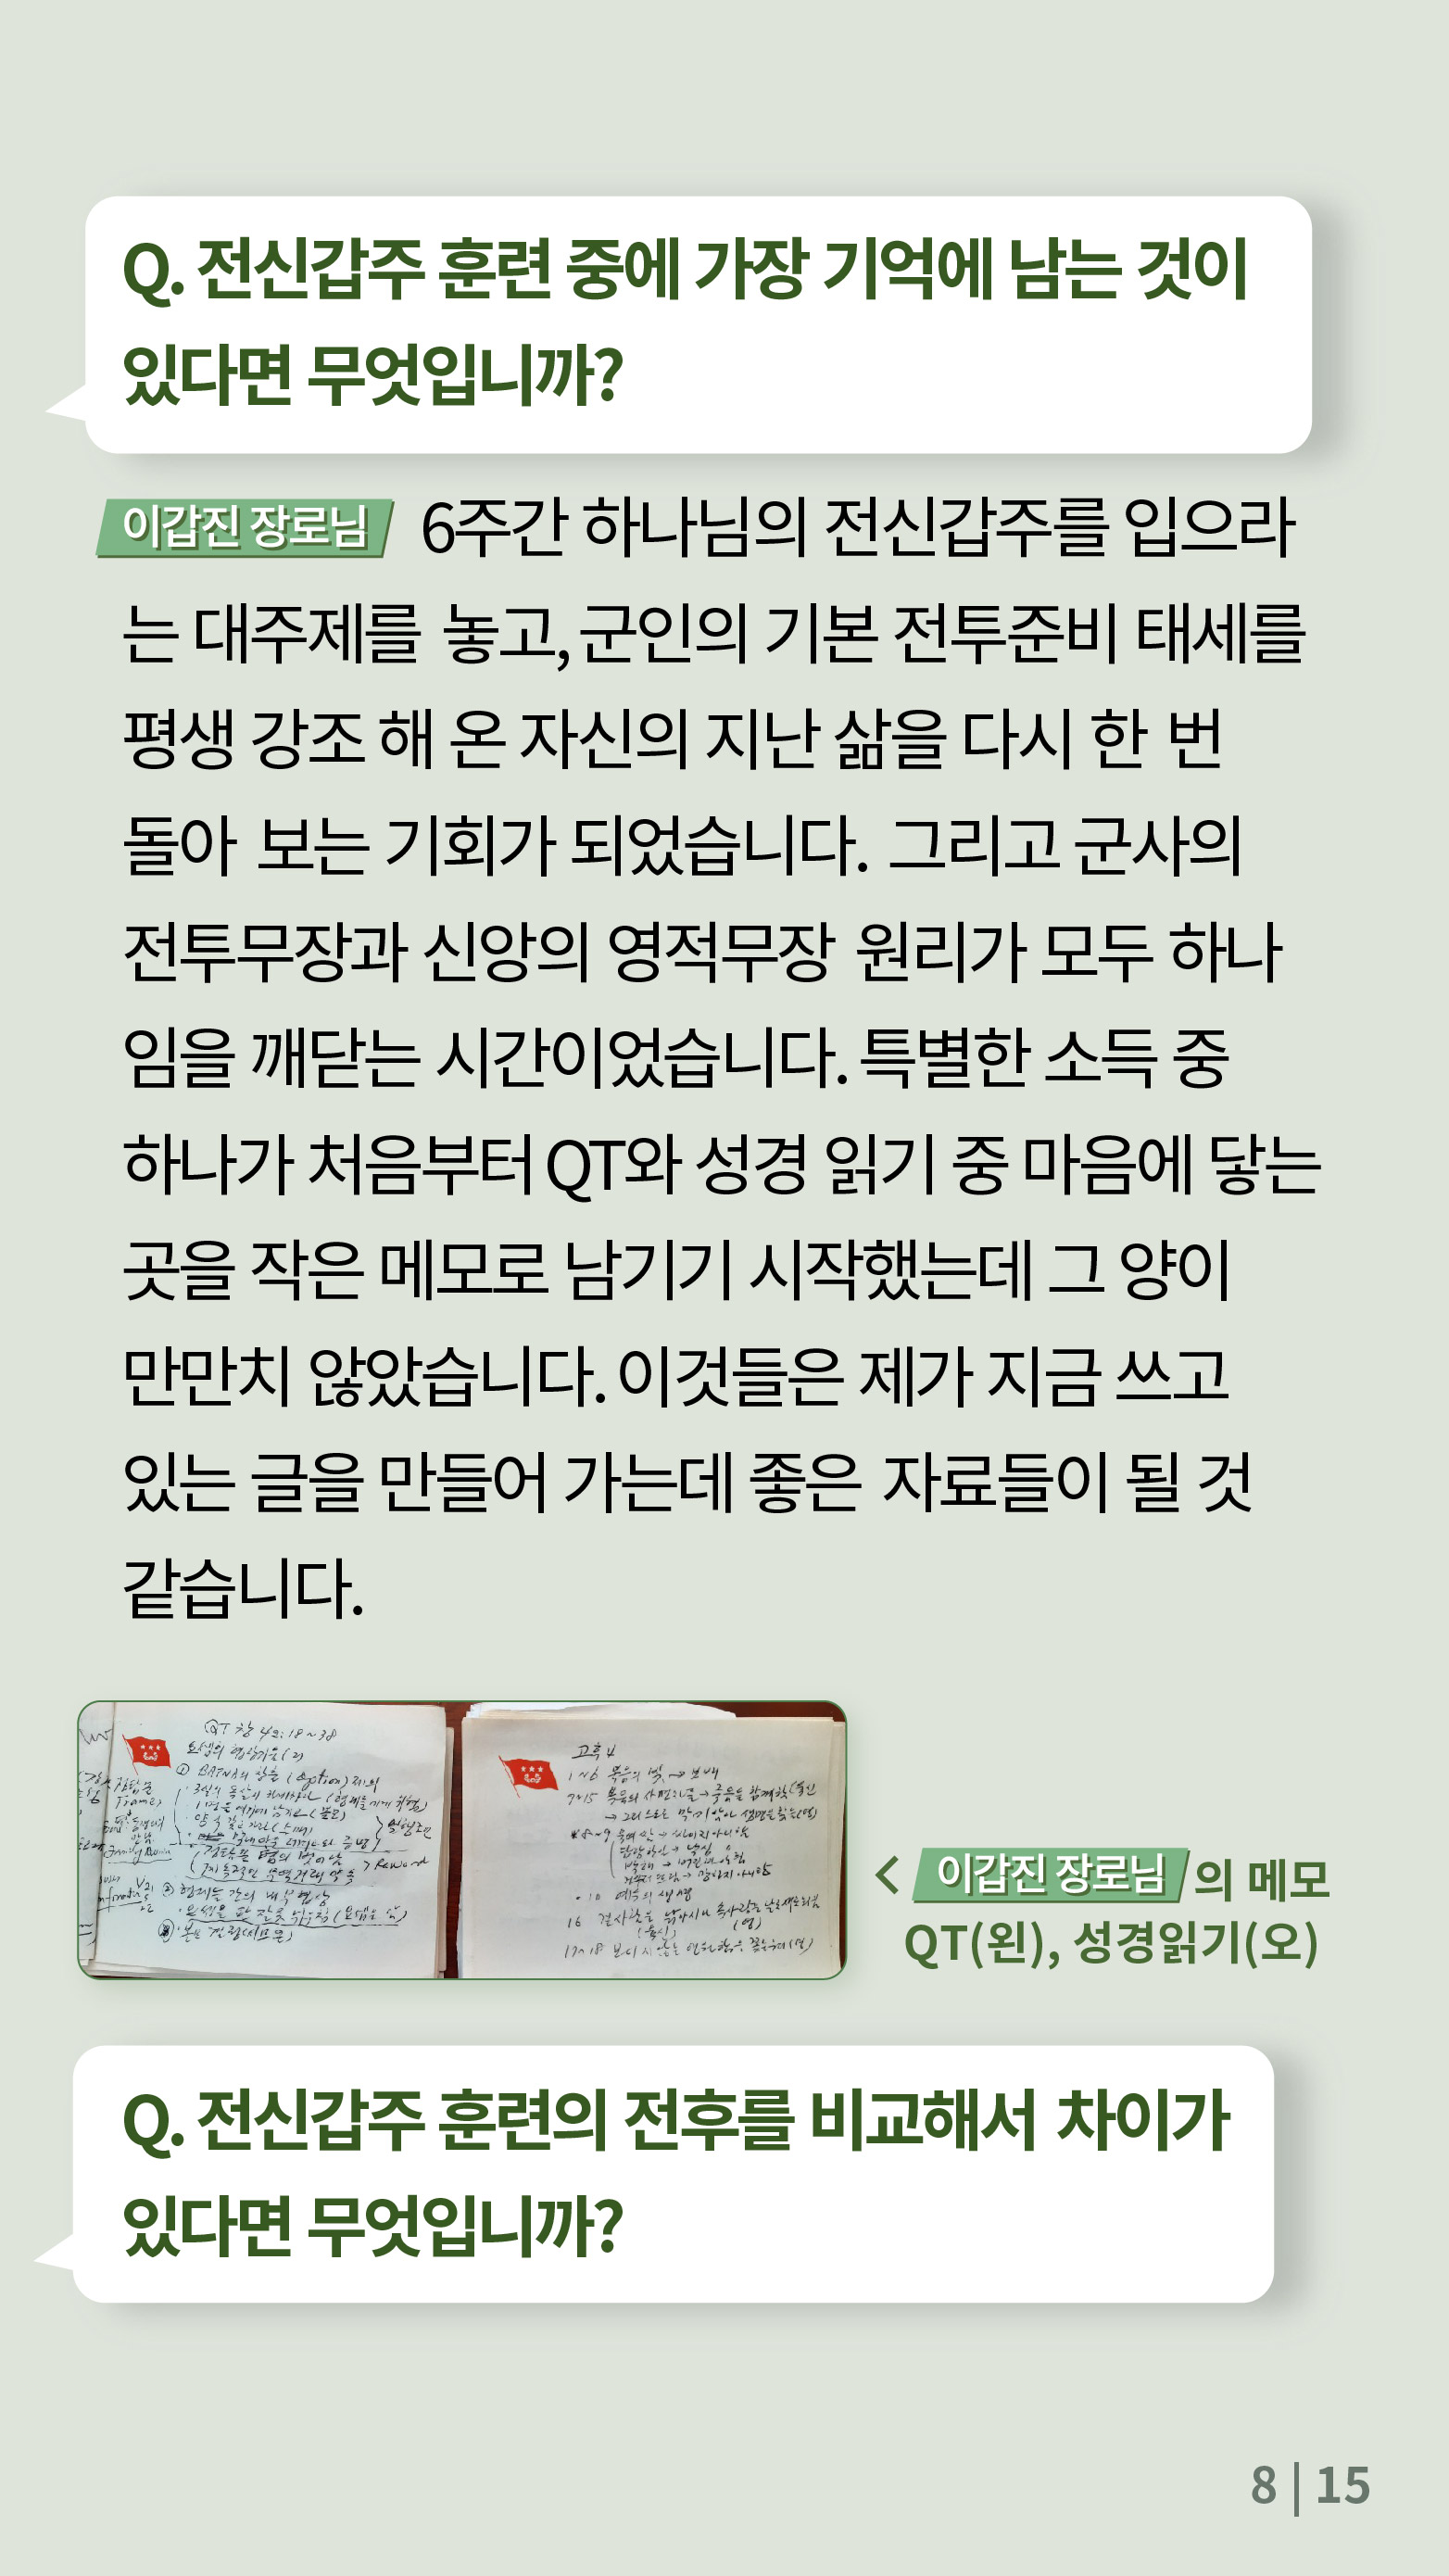 Q. 전신갑주 훈련 중에 가장 기억에 남는 것이
있다면 무엇입니까?
이갑진 장로님 6주간 하나님의 전신갑주를 입으라
는 대주제를 놓고, 군인의 기본 전투준비 태세를
평생 강조 해 온 자신의 지난 삶을 다시 한 번
돌아 보는 기회가 되었습니다. 그리고 군사의
전투무장과 신앙의 영적무장 원리가 모두 하나
임을 깨닫는 시간이었습니다. 특별한 소득 중
하나가 처음부터 QT와 성경 읽기 중 마음에 닿는
곳을 작은 메모로 남기기 시작했는데 그 양이
만만치 않았습니다. 이것들은 제가 지금 쓰고
있는 글을 만들어 가는데 좋은 자료들이 될 것
같습니다.
QT 창 42:18~38
요셉의 협상기술(2)
① BATNA의 창출 (option) 제의
Reward
고후 4
1~6 복음의 빛 → 보배
7~15
8~9
· 10 예수의 생명
16
17~18
< 이갑진 장로님 의 메모
QT(왼), 성경읽기(오)
Q. 전신갑주 훈련의 전후를 비교해서 차이가
있다면 무엇입니까?
8 | 15